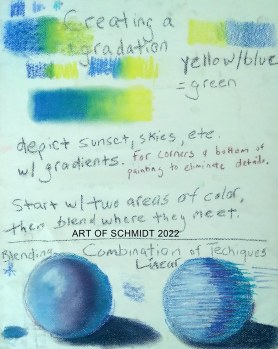 Creating a
gradation
yellow/blue
= green
depict sunset, skies, etc.
w/ gradients. For corners & bottom of
painting to eliminate details.
Start w/ two areas of color,
then blend where they meet.
ART OF SCHMIDT 2022
Blending Combination of Techiques
Linear